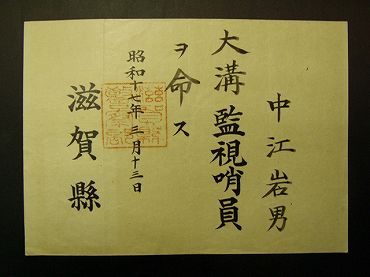 中江岩男
大溝監視哨員
ヲ命ス
昭和十七年三月十三日
滋賀縣